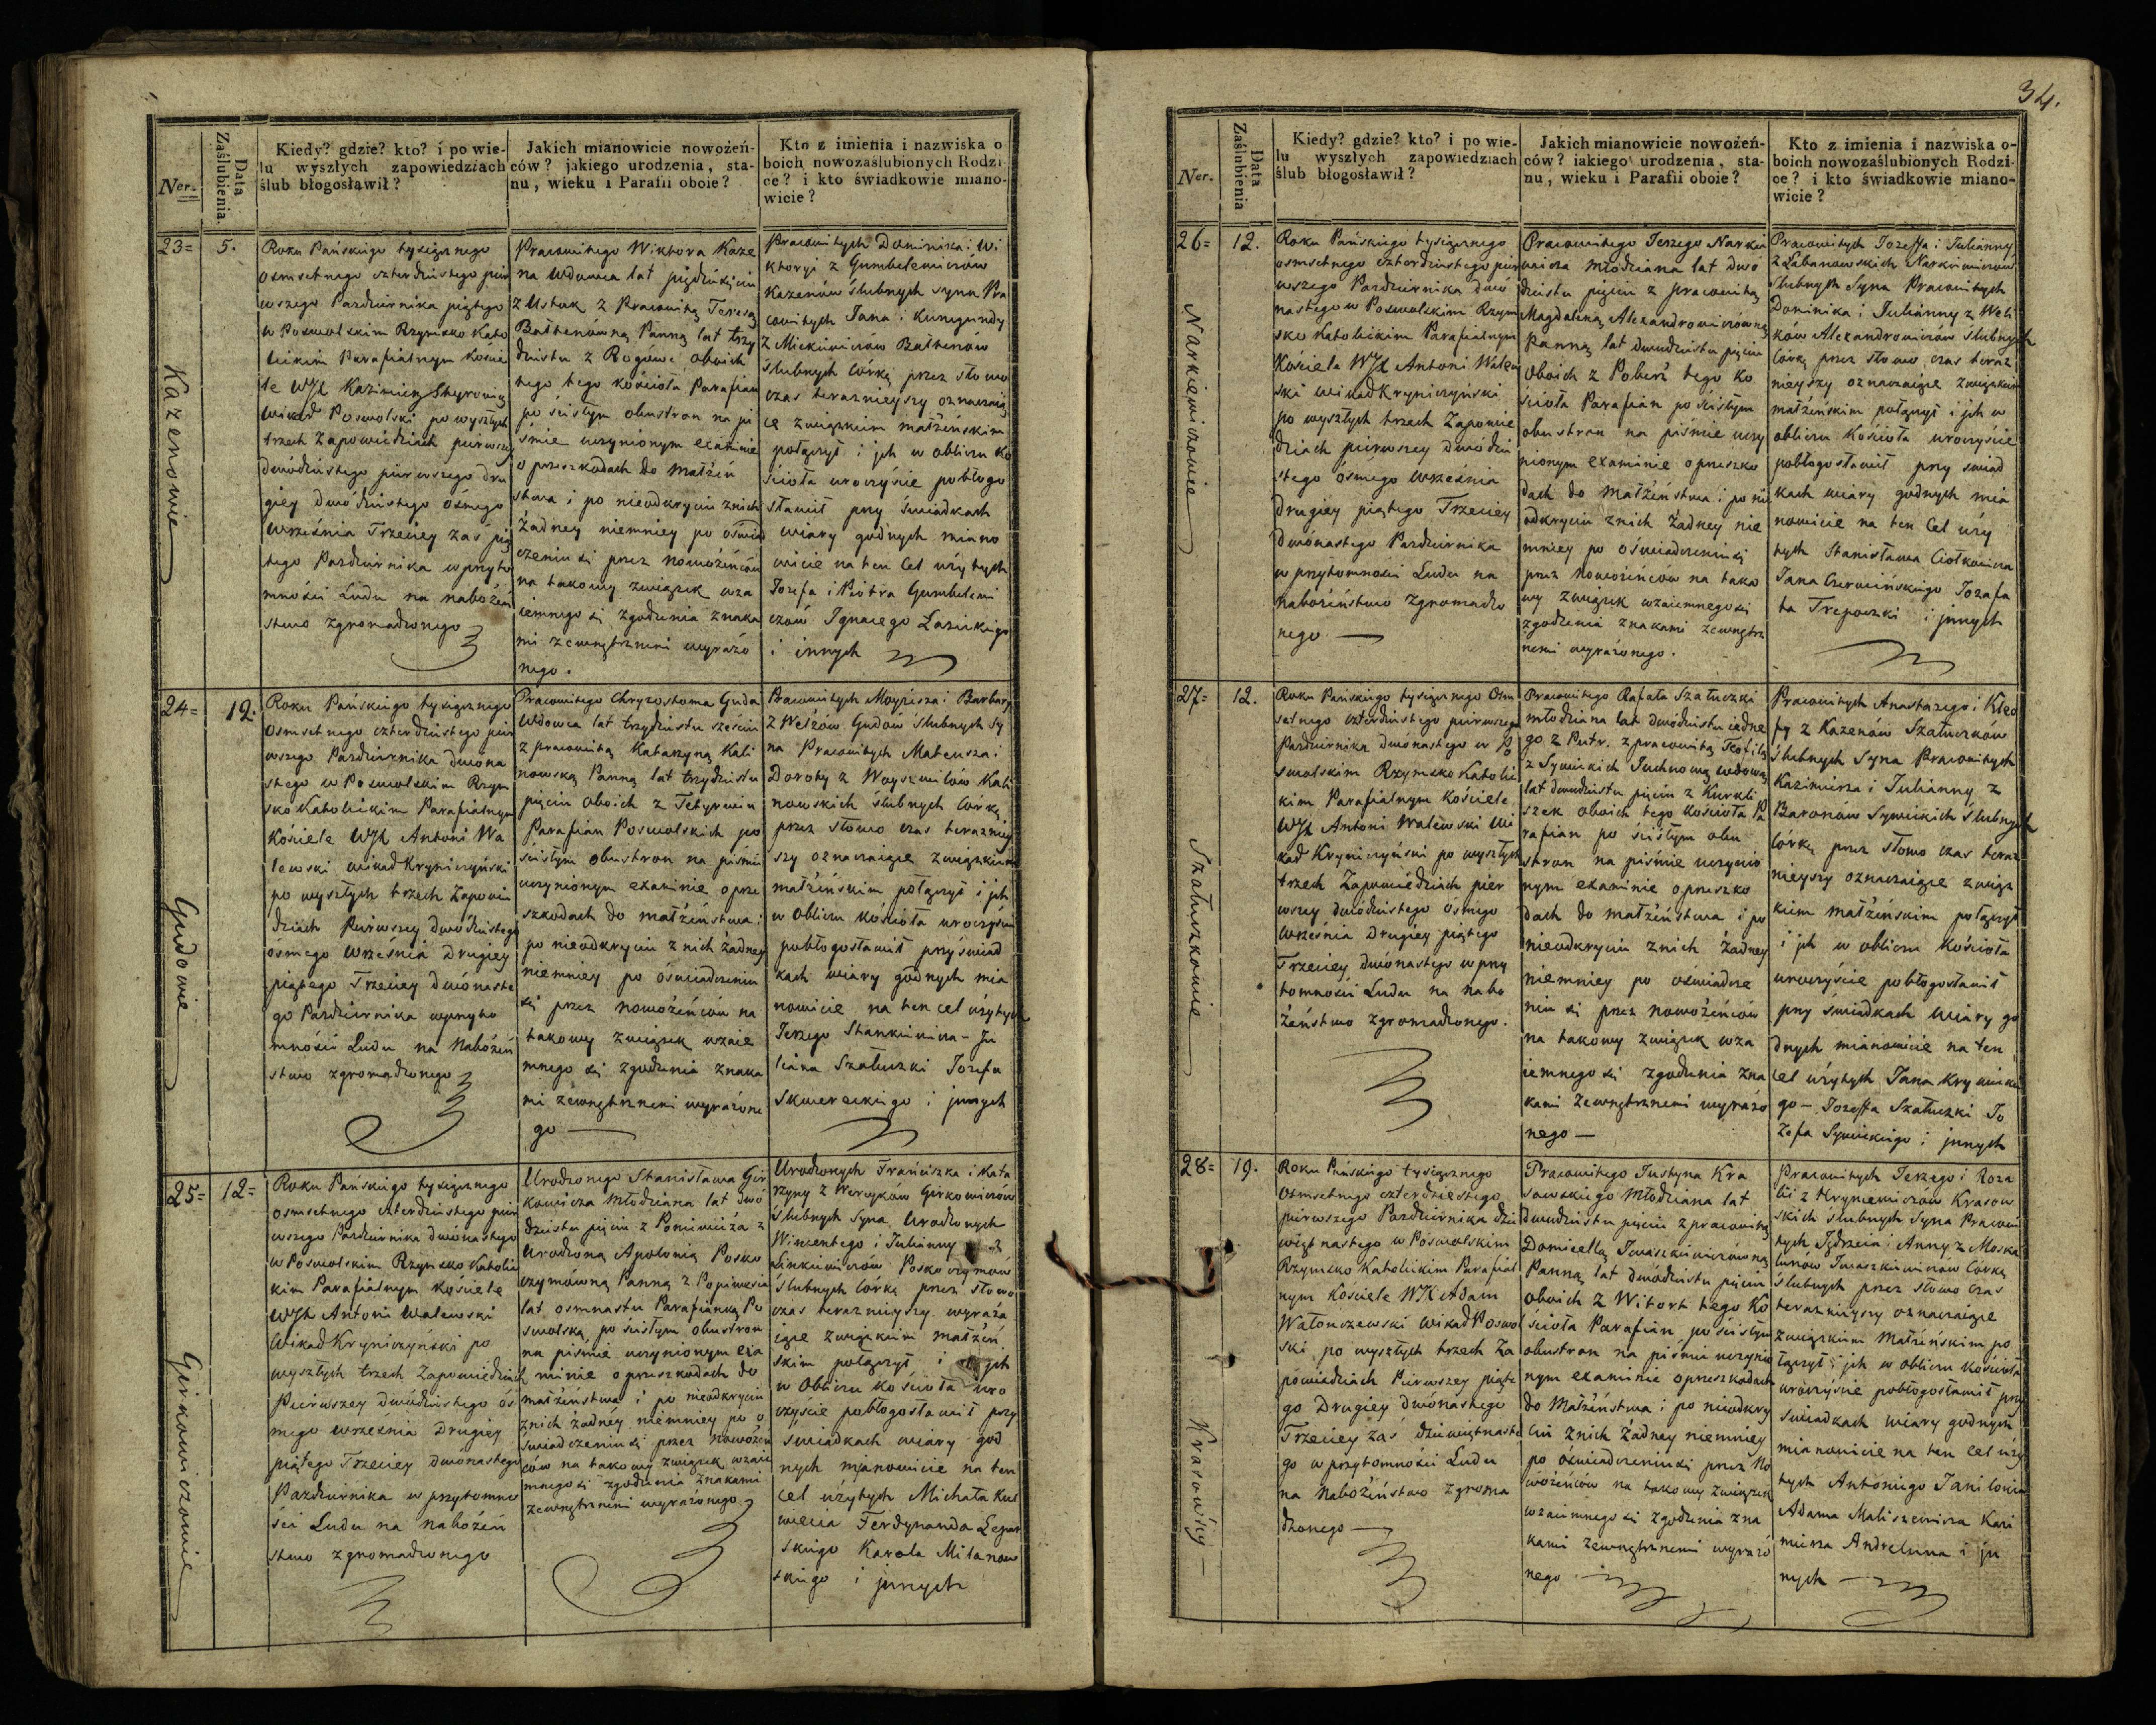 34.
Ner.
Data Zaślubienia.
Kiedy? gdzie? kto? i po wie-
lu wyszłych zapowiedziach
ślub błogosławił?
Jakich mianowicie nowożeń-
ców? jakiego urodzenia, sta-
nu, wieku i Parafii oboie?
Kto z imienia i nazwiska o
boich nowozaślubionych Rodzi-
ce? i kto świadkowie miano-
wicie?
23=
Kazenowie
5.
Roku Pańskiego tysiącznego
osmsetnego czterdziestego pier
wszego Pazdziernika piątego
w Poswolskim Rzymsko Kato
lickim Parafialnym Koscie
le WJX Kazimierz
Wikad Poswolski po wyszłych
trzech Zapowiedziach pierwszey
dwódziestego pierwszego dru
giey dwódziestego ósmego
Września Trzeciey zaś pią
tego Pazdziernika w przyto
mności Ludu na nabożeń
stwo zgromadzonego
Pracowitego Wiktora Kaze
na Wdowca lat pięćdziesięciu
z Ustuk z Pracowitą Teresą
Baltenówną Panną lat trzy
dziestu z Rogowi oboich
tego kościoła Parafian
po ścisłym obustron na pi
śmie uczynionym examinie
o przeszkodach do małżeń
stwa i po nieodkryciu znich
Żadney niemniey po oświad
czeniu się przez nowożeńców
na takowy związek wza
iemnego się zgodzenia znaka
mi zewnętrznemi wyrażo
nego.
Pracowitych Dominika i Wi
ktoryi z Gumbelewiczów
Kazenów ślubnych syna Pra
cowitych Jana i Kunegundy
z Mickiewiczów Baltenów
Ślubnych córkę przez słowo
czas teraznieyszy oznaczaią
ce związkiem małżeńskim
połączył i ich w obliczu Ko
ścioła uroczyście pobłogo
sławił przy świadkach
wiary godnych miano
wicie na ten Cel użytych
Jozefa i Piotra Gumbelewi
czów Ignacego Łasickiego
i innych
24=
Gudowie
12.
Roku Pańskiego tysiącznego
Osmsetnego czterdziestego pier
wszego Pazdziernika dwóna
stego w Poswolskim Rzym
sko Katolickim Parafialnym
Kościele WJX Antoni Wa
lewski wikad Kryniczyński
po wyszłych trzech Zapowie
dziach Pierwszey dwódziestego
osmego Września Drugiey
piątego Trzeciey dwónaste
go Pazdziernika w przyto
mności Ludu na Nabożeń
stwo zgromadzonego
Pracowitego Chryzostoma Guda
Wdowca lat trzydziestu sześciu
z pracowitą Katarzyną Kali
nowską Panną lat trzydziestu
pięciu oboich z Tetyrwin
Parafian Poswolskich po
ścisłym obustron na piśmie
uczynionym examinie o prze
szkodach do małżeństwa i
po nieodkryciu z nich żadney
niemniey po oświadczeniu
się przez nowożeńców na
takowy związek wzaie
mnego się zgodzenia znaka
mi zewnętrznemi wyrażone
go
Pracowitych Moyżesza i Barbary
z Welżów Gudów Ślubnych Sy
na Pracowitych Mateusza i
Doroty z Woyszwilów Kali
nowskich ślubnych córkę
przez słowo czas terazniey
szy oznaczaiące związkiem
małżeńskim połączył i ich
w obliczu Kościoła uroczyście
pobłogosławił przy świad
kach wiary godnych mia
nowicie na ten cel użytych
Jerzego Stankiewicza - Ju
liana Szałuczki Jozefa
Skwereckiego i innych
25=
Girkowiczowie
12=
Roku Pańskiego tysiącznego
osmsetnego czterdziestego pier
wszego Pazdziernika dwónastego
w Poswolskim Rzymsko Katolic
kim Parafialnym Kościele
WJX Antoni Walewski
Wikad Kryniczyński po
wyszłych trzech Zapowiedziach
Pierwszey dwódziestego ós
mego września Drugiey
piątego Trzeciey dwónastego
Pazdziernika w przytomno
ści Ludu na Nabożeń
stwo zgromadzonego
Urodzonego Stanisława Gir
kowicza Młodziana lat dwó
dziestu pięciu z Poniewieża z
Urodzoną Apolonią Posko
czymówną Panną z Popiwesia
lat osmnastu Parafianką Po
swolską, po ścisłym obustron
na piśmie uczynionym exa
minie o przeszkodach do
małżeństwa i po nieodkryciu
znich żadney niemniey po o
świadczeniu się przez nowożeń
ców na takowy związek wzaie
mnego się zgodzenia znakami
zewnętrznemi wyrażonego
Urodzonych Franciszka i Kata
rzyny z Werczków Girkowiczów
Ślubnych Syna, Urodzonych
Wincentego i Julianny z
Linkiewiczów Poskoczymów
Ślubnych Córkę przez słowo
czas teraznieyszy wyraża
iące związkiem małżeń
skim połączył i ich
w Obliczu Kościoła uro
czyście pobłogosławił przy
świadkach wiary god
nych mianowicie na ten
cel użytych Michała
Ferdynanda
Karola Milanow
skiego i innych
Ner.
Data Zaślubienia
Kiedy? gdzie? kto? i po wie-
lu wyszłych zapowiedziach
ślub błogosławił?
Jakich mianowicie nowożeń-
ców? iakiego urodzenia, sta-
nu, wieku i Parafii oboie?
Kto z imienia i nazwiska o-
boich nowozaślubionych Rodzi-
ce? i kto świadkowie miano-
wicie?
26=
Narkiewiczowie
12.
Roku Pańskiego tysiącznego
osmsetnego czterdziestego pier
wszego Pazdziernika dwó
nastego w Poswolskim Rzym
sko Katolickim Parafialnym
Kościele WJX Antoni Walew
ski wikad Kryniczyński
po wyszłych trzech Zapowie
dziach pierwszey dwódzie
stego ósmego września
Drugiey piątego Trzeciey
Dwónastego Pazdziernika
w przytomności Ludu na
nabożeństwo zgromadzo
nego
Pracowitego Jerzego Narkie
wicza Młodziana lat dwó
dziestu pięciu z pracowitą
Magdaleną Alexandrowiczówną
Panną lat dwudziestu pięciu
Oboich z Poberż tego Ko
ścioła Parafian po ścisłym
obustron na piśmie uczy
nionym examinie o przeszko
dach do małżeństwa i po nie
odkryciu znich żadney nie
mniey po oświadczeniu się
przez nowożeńców na tako
wy związek wzaiemnego się
zgodzenia znakami zewnętrz
nemi wyrażonego.
Pracowitych Jozeffa i Julianny
z Łabanowskich Narkiewiczów
Ślubnych Syna Pracowitych
Dominika i Julianny z Weli
ków Alexandrowiczów ślubnych
Córkę przez słowo czas teraz
nieyszy oznaczaiące związkiem
małżeńskim połączył i ich w
obliczu Kościoła uroczyście
pobłogosławił przy świad
kach wiary godnych mia
nowicie na ten Cel uży
tych Stanisława Ciołkowicza
Jana Czerwińskiego Jozafa
ta Trepoczki i innych
27=
Szałuczkowie
12.
Roku Pańskiego tysiącznego Osm
setnego czterdziestego pierwszego
Pazdziernika dwónastego w Po
swolskim Rzymsko Katolic
kim Parafialnym Kościele
WJX Antoni Walewski Wi
kad Kryniczyński po wyszłych
trzech Zapowiedziach pier
wszey dwódziestego ósmego
września Drugiey piątego
Trzeciey dwónastego w przy
tomności Ludu na Nabo
żeństwo zgromadzonego.
Pracowitego Rafała Szałuczki
młodziana lat dwódziestu iedne
go z Putr. z pracowitą Teofilą
z Sywickich Juchnową wdową
lat dwudziestu pięciu z Kurkli
szek oboich tego Kościoła Pa
rafian po ścisłym obu
stron na piśmie uczynio
nym examinie o przeszko
dach do małżeństwa i po
nieodkryciu znich Żadney
niemniey po oświadcze
niu się przez nowożeńców
na takowy związek wza
iemnego się zgodzenia zna
kami zewnętrznemi wyrażo
nego —
Pracowitych Anastazego i Kleo
fy z Kazenów Szałuczków
Ślubnych Syna Pracowitych
Kazimierza i Julianny z
Baronów Sywickich Ślubnych
córkę przez słowo czas teraz
nieyszy oznaczaiące związ
kiem małżeńskim połączył
i ich w obliczu Kościoła
uroczyście pobłogosławił
przy świadkach wiary go
dnych mianowicie na ten
cel użytych Jana Krywicke
go - Jozeffa Szałuczki Jo
zefa Sywickiego i innych
28=
Krasowscy —
19.
Roku Pańskiego tysiącznego
Osmsetnego czterdziestego
pierwszego Pazdziernika dzie
więtnastego w Poswolskim
Rzymsko Katolickim Parafial
nym Kościele WJX Adam
Watonczewski wikad Poswol
ski po wyszłych trzech Za
powiedziach Pierwszey piąte
go Drugiey dwónastego
Trzeciey zaś dziewiętnaste
go w przytomności Ludu
na Nabożeństwo zgroma
dzonego —
Pracowitego Justyna Kra
sowskiego Młodziana lat
dwudziestu pięciu z pracowitą
Domicellą Iwaszkiewiczówną
Panną lat dwódziestu pięciu
oboich z Witort tego Ko
ścioła Parafian po ścisłym
obustron na piśmie uczynio
nym examinie o przeszkodach
do Małżeństwa i po nieodkry
ciu znich Żadney niemniey
po oświadczeniu się przez No
wożeńców na takowy związek
wzaiemnego się zgodzenia zna
kami zewnętrznemi wyrażo
nego
Pracowitych Jerzego i Roza
lii z Hryniewiczów Krasow
skich ślubnych Syna Pracowi
tych Jędrzeia i Anny z Moska
lunów Iwaszkiewiczów Córkę
Ślubnych przez słowo czas
teraznieyszy oznaczaiące
związkiem Małżeńskim po
łączył i ich w obliczu Kościoła
uroczyście pobłogosławił przy
świadkach wiary godnych
mianowicie na ten cel uży
tych Antoniego
Adama Maliszewicza Kazi
mierza i in
nych